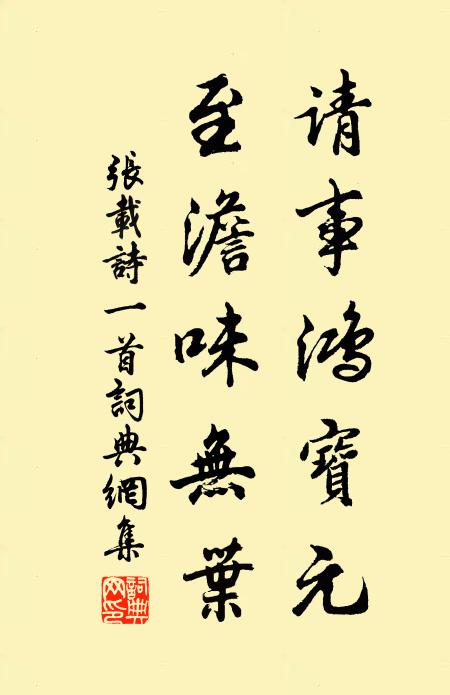 请事鸿寶元
至澹味無葉
張載詩一首詞典網集
詞典
网印